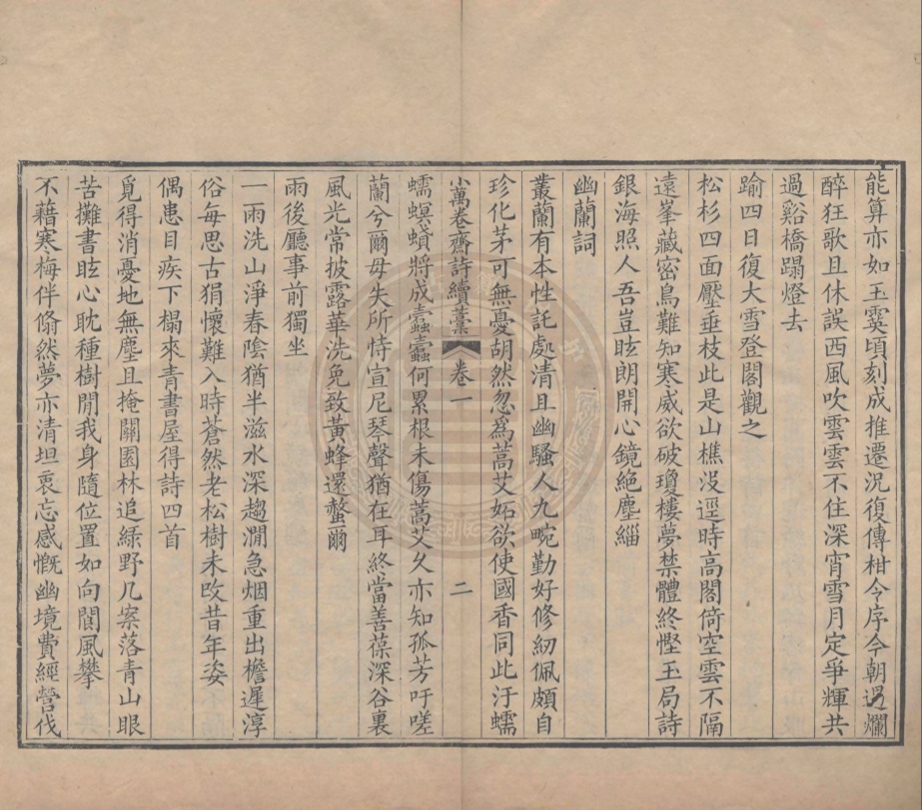 能算亦如玉霙頃刻成推遷況復傳柑令序今朝遇爛
醉狂歌且休誤西風吹雲雲不住深宵雪月定爭輝共
過谿橋蹋燈去
踰四日復大雪登閣觀之
松杉四面壓垂枝此是山樵沒逕時高閣倚空雲不隔
遠峯藏密鳥難知寒威欲破瓊樓夢禁體終慳玉局詩
銀海照人吾豈眩朗開心鏡絕塵緇
幽蘭詞
叢蘭有本性託處清且幽騷人九畹勤好修紉佩頗自
珍化茅可無憂胡然忽為蒿艾妬欲使國香同此汙蠕
小萬卷齋詩續藁 卷一 二
蠕螟蟥將成蠹蠹何累根未傷蒿艾久亦知孤芳吁嗟
蘭兮爾毋失所恃宣尼琴聲猶在耳終當善葆深谷裏
風光常披露華洗免致黃蜂還螫爾
雨後廳事前獨坐
一雨洗山淨春陰猶半滋水深趨澗急烟重出檐遲淳
俗每思古狷懷難入時蒼然老松樹未改昔年姿
偶患目疾下榻來青書屋得詩四首
覓得消憂地無塵且掩關園林追綠野几案落青山眼
苦攤書眩心眈種樹閒我身隨位置如向閬風攀
不藉寒梅伴翛然夢亦清坦衷忘感慨幽境費經營伐